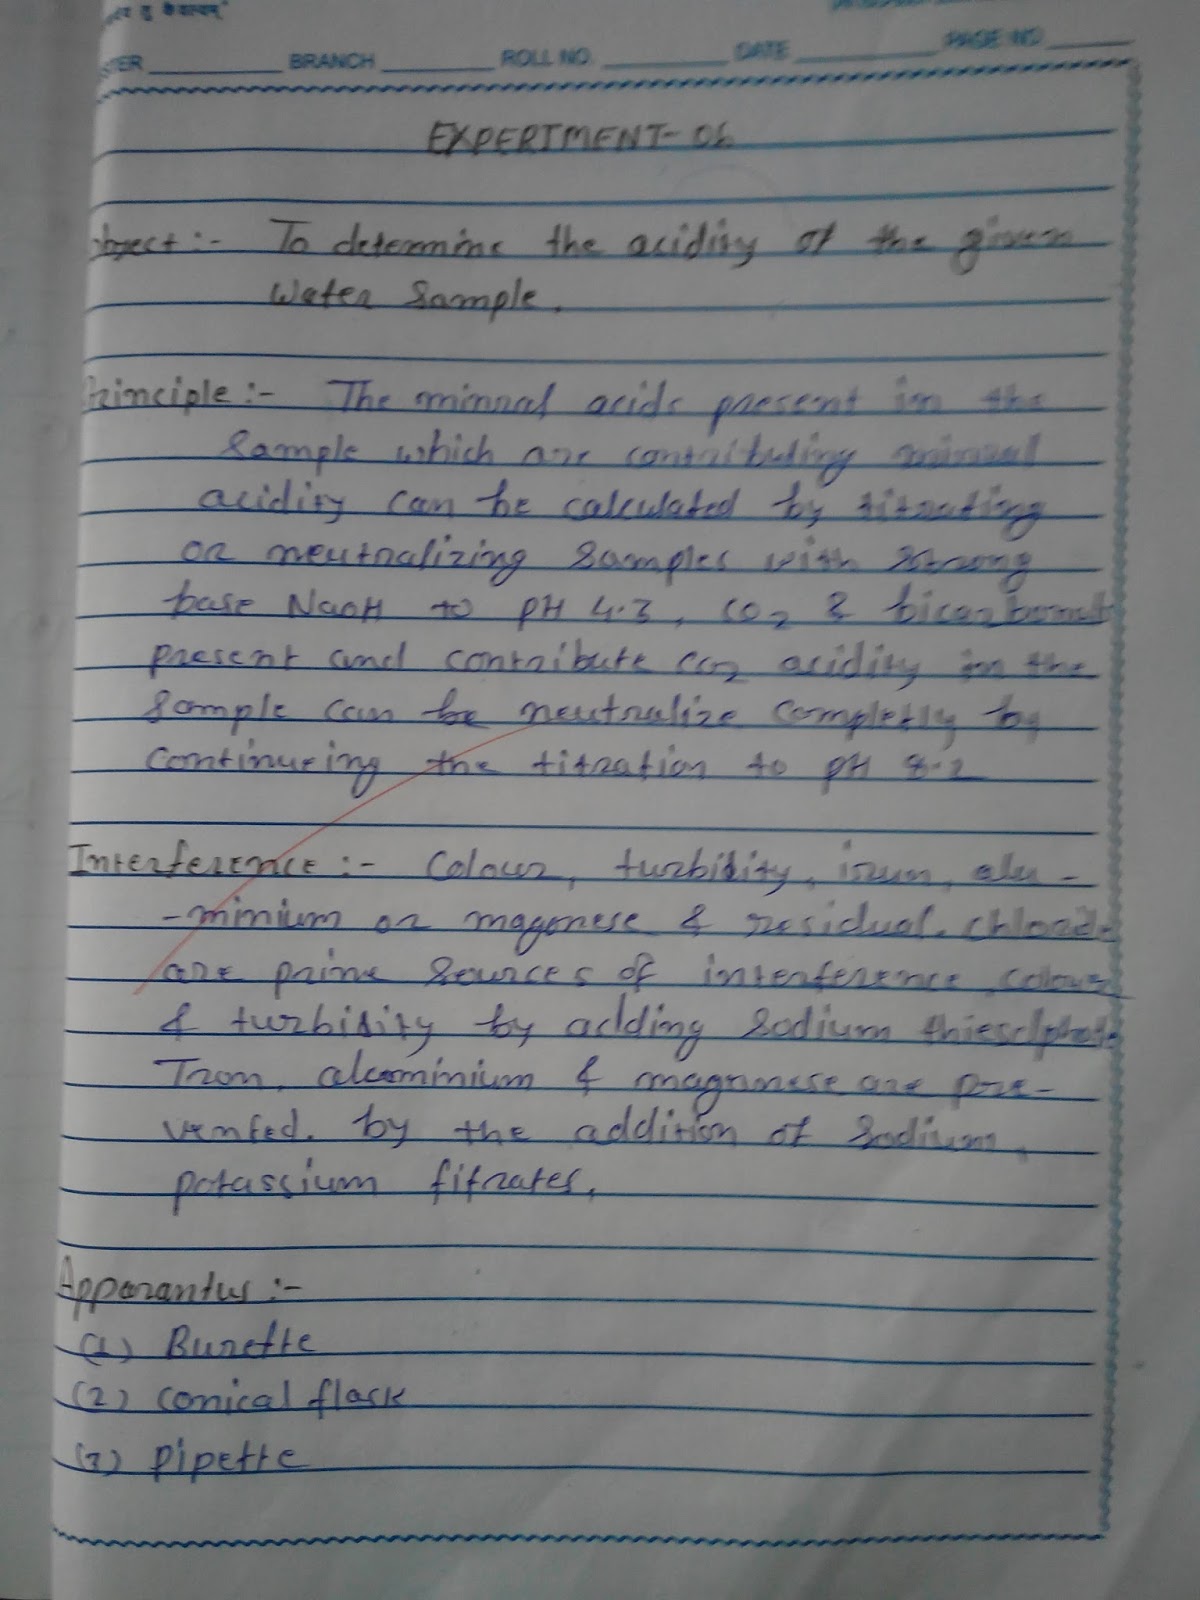 BRANCH ROLL NO. DATE PAGE NO
EXPERIMENT-06
Object:- To determine the acidity of the given
Water Sample.
Principle:- The minral acids present in the
Sample which are contributing minral
acidity can be calculated by titrating
or neutralizing Samples with Strong
base NaOH to pH 4.3, CO2 & bicarbonat
present and contribute co2 acidity in the
Sample can be neutralize completly by
Continueing the titration to pH 8.2
Interference:- Colour, turbidity, irum, alu-
-minium or magonese & residual. chloride
are prime Sources of interference colour
& turbidity by adding Sodium
Iron, aluminium & magnnese are pre-
vented. by the addition of Sodium,
potassium fitrates,
Apparantus:-
(1) Burette
(2) conical flask
(3) pipette